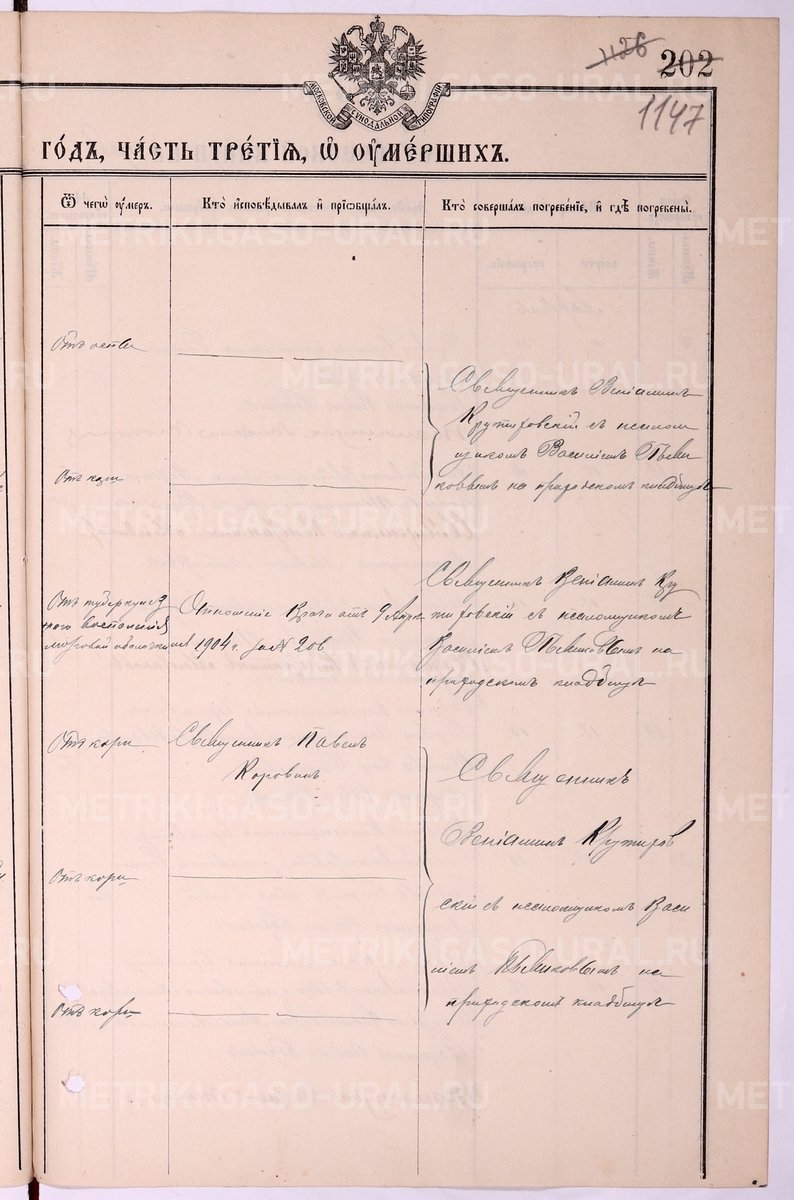 1126 202
1147
МОСКОВСКОЙ СУНОДАЛЬНОЙ ТИПОГРАФІИ
ГО́ДЪ, ЧА́СТЬ ТРЕ́ТІѦ, Ѡ҆ ОУ҆МЕ́РШИХЪ.
Ѿ чегѡ̀ ᲂу҆́меръ.
Кто̀ и҆сповѣ́дывалъ и҆ прїѡбща́лъ.
Кто̀ соверша́лъ погребе́нїе, и҆ гдѣ̀ погребены̀.
Отъ оспы
Священникъ Веніаминъ
Крутиховскій съ псалом
щикомъ Василіемъ
на приходскомъ кладбищѣ
Отъ кори
Отъ туберкулез
наго воспаленія
мозговой оболочки
Отношеніе Врача отъ 9 Апрѣ
ля 1904 г. за № 206
Священникъ Веніаминъ Кру
тиховскій съ псаломщикомъ
Василіемъ на
приходскомъ кладбищѣ
Отъ кори
Священникъ Павелъ
Коровинъ
Священникъ
Веніаминъ Крутихов
скій съ псаломщикомъ Васи
ліемъ на
приходскомъ кладбищѣ
Отъ кори
Отъ кори
METRIKI.GASO-URAL.RU